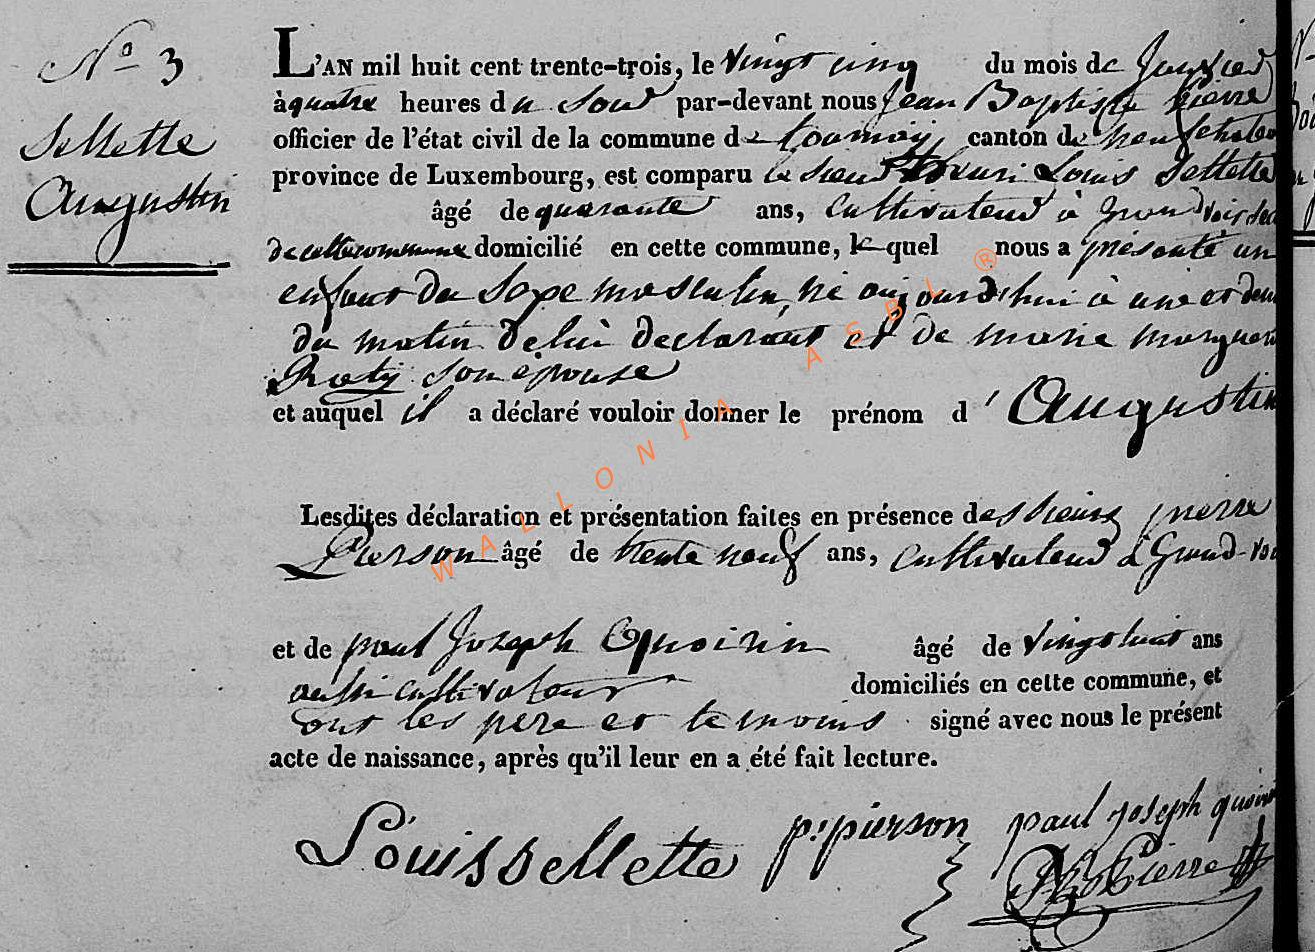 N° 3
Sellette
Augustin
L'AN mil huit cent trente-trois, le vingt cinq du mois de Janvier
à quatre heures du Soir par-devant nous Jean Baptiste Pierre
officier de l'état civil de la commune de tournay, canton de neufchateau
province de Luxembourg, est comparu le Sieur henri Louis Sellette
âgé de quarante ans, Cultivateur à grand voir
de cette commune domicilié en cette commune, lequel nous a présenté un
enfant du Sexe masculin, né aujourd'hui à une et
du matin de lui déclarant et de marie
son épouse
et auquel il a déclaré vouloir donner le prénom d' Augustin
Lesdites déclaration et présentation faites en présence des Sieurs pierre
Pierson âgé de trente neuf ans, Cultivateur à Grand-voi
et de paul Joseph Quoirin âgé de vingt huit ans
aussi cultivateur domiciliés en cette commune, et
ont les père et temoins signé avec nous le présent
acte de naissance, après qu'il leur en a été fait lecture.
Louis Sellette p. pierson paul joseph quoirin
Pierre
WALLONIA ASBL ®